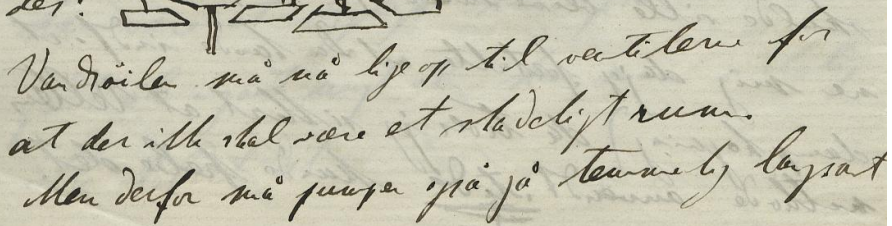 des:
Vandsöilen må nå lige op til ventilerne for
at der ikke skal være et skadeligt rum.
Men derfor må pumpen også gå temmelig langsomt